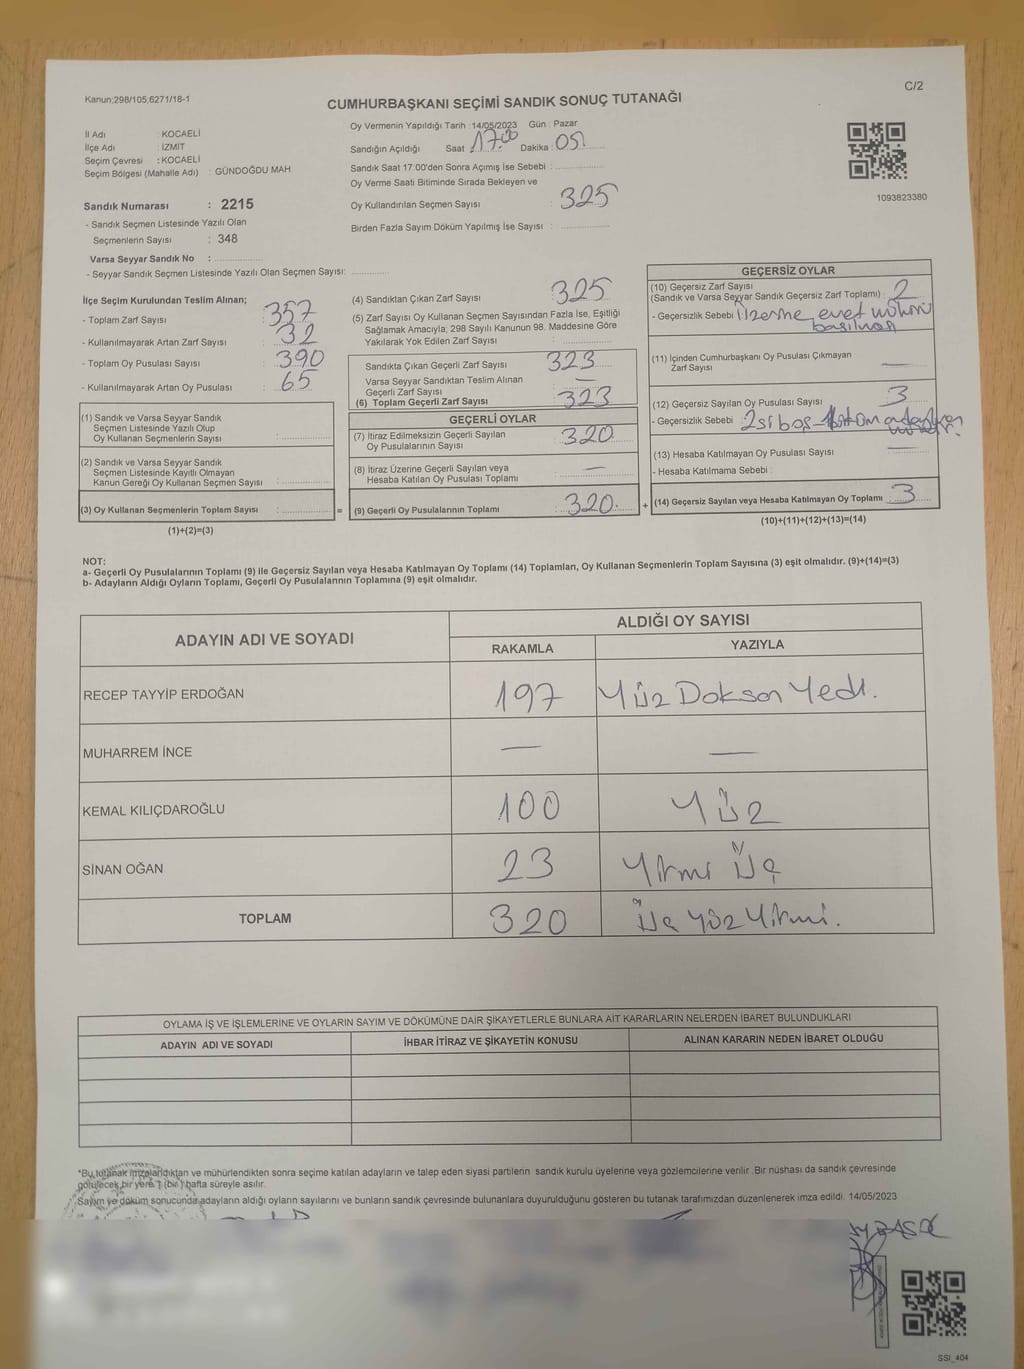 Kanun;298/105;6271/18-1
C/2
CUMHURBAŞKANI SEÇİMİ SANDIK SONUÇ TUTANAĞI
İl Adı : KOCAELİ
İlçe Adı : İZMİT
Seçim Çevresi : KOCAELİ
Seçim Bölgesi (Mahalle Adı) : GÜNDOĞDU MAH
Sandık Numarası : 2215
- Sandık Seçmen Listesinde Yazılı Olan
Seçmenlerin Sayısı : 348
Varsa Seyyar Sandık No :
- Seyyar Sandık Seçmen Listesinde Yazılı Olan Seçmen Sayısı:
Oy Vermenin Yapıldığı Tarih :14/05/2023 Gün : Pazar
Sandığın Açıldığı Saat : 17.00 Dakika : 05
Sandık Saat 17:00'den Sonra Açımış İse Sebebi :
Oy Verme Saati Bitiminde Sırada Bekleyen ve
Oy Kullandırılan Seçmen Sayısı : 325
Birden Fazla Sayım Döküm Yapılmış İse Sayısı :
1093823380
İlçe Seçim Kurulundan Teslim Alınan;
- Toplam Zarf Sayısı : 357
- Kullanılmayarak Artan Zarf Sayısı : 32
- Toplam Oy Pusulası Sayısı : 390
- Kullanılmayarak Artan Oy Pusulası : 65
(1) Sandık ve Varsa Seyyar Sandık
Seçmen Listesinde Yazılı Olup
Oy Kullanan Seçmenlerin Sayısı :
(2) Sandık ve Varsa Seyyar Sandık
Seçmen Listesinde Kayıtlı Olmayan
Kanun Gereği Oy Kullanan Seçmen Sayısı :
(3) Oy Kullanan Seçmenlerin Toplam Sayısı : =
(1)+(2)=(3)
(4) Sandıktan Çıkan Zarf Sayısı : 325
(5) Zarf Sayısı Oy Kullanan Seçmen Sayısından Fazla İse, Eşitliği
Sağlamak Amacıyla; 298 Sayılı Kanunun 98. Maddesine Göre
Yakılarak Yok Edilen Zarf Sayısı :
Sandıkta Çıkan Geçerli Zarf Sayısı : 323
Varsa Seyyar Sandıktan Teslim Alınan
Geçerli Zarf Sayısı : —
(6) Toplam Geçerli Zarf Sayısı : 323
GEÇERLİ OYLAR
(7) İtiraz Edilmeksizin Geçerli Sayılan
Oy Pusulalarının Sayısı : 320
(8) İtiraz Üzerine Geçerli Sayılan veya
Hesaba Katılan Oy Pusulası Toplamı : —
(9) Geçerli Oy Pusulalarının Toplamı : 320 +
GEÇERSİZ OYLAR
(10) Geçersiz Zarf Sayısı
(Sandık ve Varsa Seyyar Sandık Geçersiz Zarf Toplamı) : 2
- Geçersizlik Sebebi : Üzerine evet mührü
basılması
(11) İçinden Cumhurbaşkanı Oy Pusulası Çıkmayan
Zarf Sayısı : —
(12) Geçersiz Sayılan Oy Pusulası Sayısı : 3
- Geçersizlik Sebebi : 2si boş -
(13) Hesaba Katılmayan Oy Pusulası Sayısı : —
- Hesaba Katılmama Sebebi :
(14) Geçersiz Sayılan veya Hesaba Katılmayan Oy Toplamı : 3
(10)+(11)+(12)+(13)=(14)
NOT:
a- Geçerli Oy Pusulalarının Toplamı (9) ile Geçersiz Sayılan veya Hesaba Katılmayan Oy Toplamı (14) Toplamları, Oy Kullanan Seçmenlerin Toplam Sayısına (3) eşit olmalıdır. (9)+(14)=(3)
b- Adayların Aldığı Oyların Toplamı, Geçerli Oy Pusulalarının Toplamına (9) eşit olmalıdır.
ADAYIN ADI VE SOYADI
ALDIĞI OY SAYISI
RAKAMLA YAZIYLA
RECEP TAYYİP ERDOĞAN 197 Yüz Doksan Yedi.
MUHARREM İNCE — —
KEMAL KILIÇDAROĞLU 100 Yüz
SİNAN OĞAN 23 Yirmi Üç
TOPLAM 320 Üç Yüz Yirmi.
OYLAMA İŞ VE İŞLEMLERİNE VE OYLARIN SAYIM VE DÖKÜMÜNE DAİR ŞİKAYETLERLE BUNLARA AİT KARARLARIN NELERDEN İBARET BULUNDUKLARI
ADAYIN ADI VE SOYADI İHBAR İTİRAZ VE ŞİKAYETİN KONUSU ALINAN KARARIN NEDEN İBARET OLDUĞU
*Bu tutanak imzalandıktan ve mühürlendikten sonra seçime katılan adayların ve talep eden siyasi partilerin sandık kurulu üyelerine veya gözlemcilerine verilir. Bir nüshası da sandık çevresinde
görülecek bir yere 1 (bir) hafta süreyle asılır.
Sayım ve döküm sonucunda adayların aldığı oyların sayılarını ve bunların sandık çevresinde bulunanlara duyurulduğunu gösteren bu tutanak tarafımızdan düzenlenerek imza edildi. 14/05/2023
SSI_404